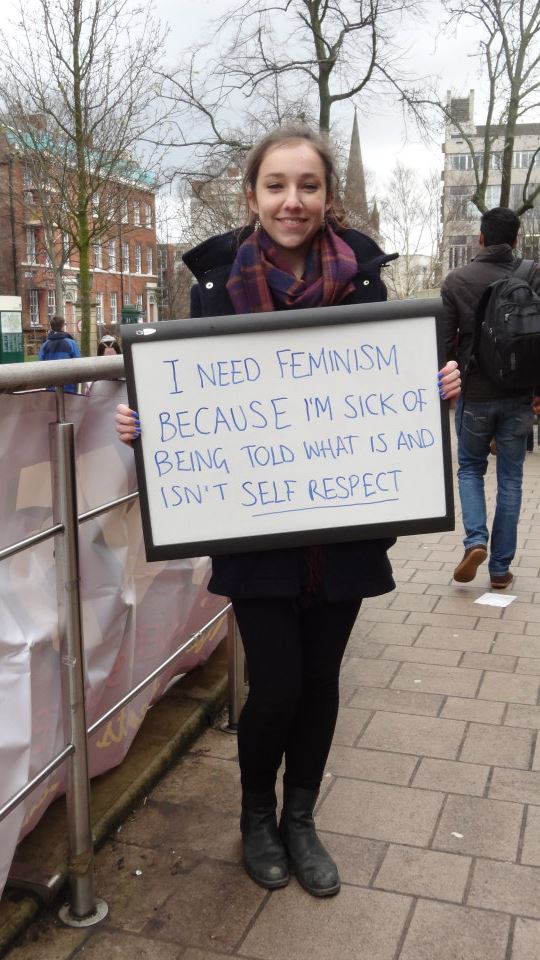 I NEED FEMINISM
BECAUSE I'M SICK OF
BEING TOLD WHAT IS AND
ISN'T SELF RESPECT